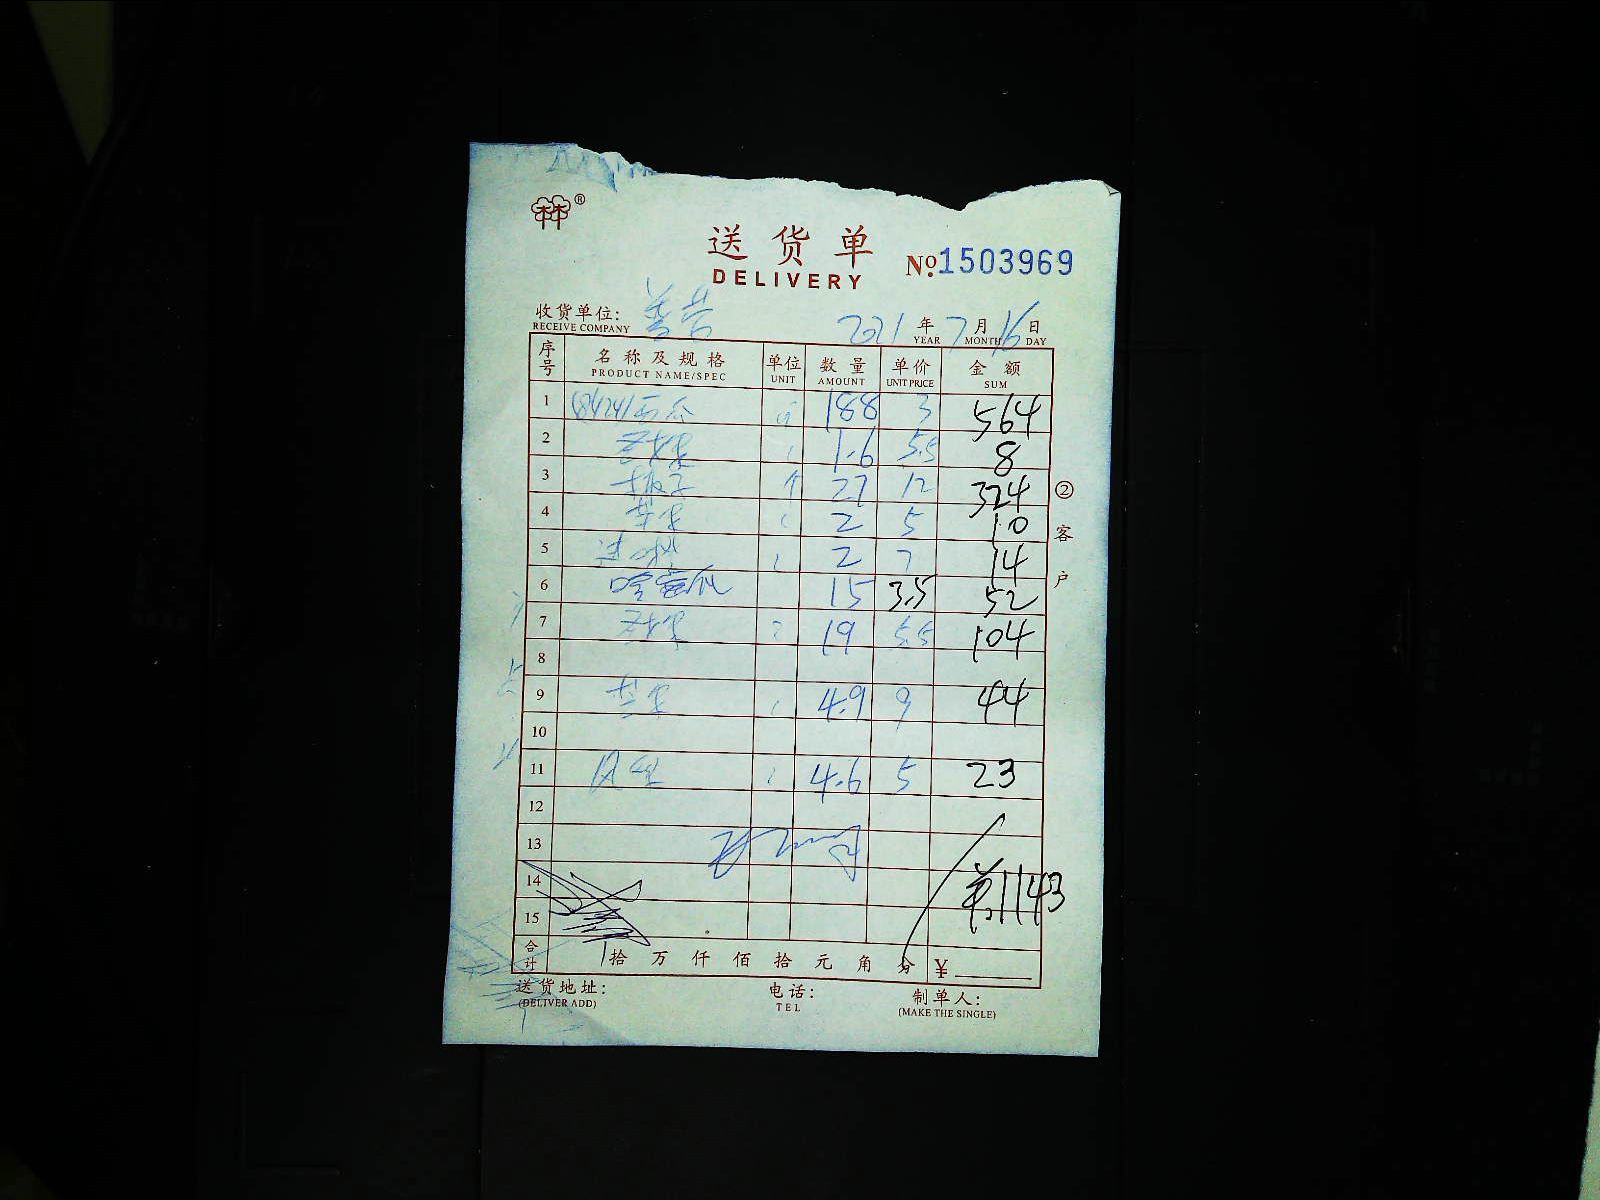 林®
送货单
DELIVERY
№ 1503969
收货单位:
RECEIVE COMPANY
2021 年 7 月 16 日
YEAR MONTH DAY
序号 名称及规格 单位 数量 单价 金额
PRODUCT NAME/SPEC UNIT AMOUNT UNIT PRICE SUM
1 (8424)西瓜 188 3 564
2 1.6 5.5 8
3 个 27 12 324
4 2 5 10
5 2 7 14
6 哈蜜瓜 15 3.5 52
7 19 5.5 104
8
9 4.9 9 44
10
11 4.6 5 23
12
13
14
15
1143
合计 拾 万 仟 佰 拾 元 角 分 ¥
送货地址: 电话: 制单人:
(DELIVER ADD) TEL (MAKE THE SINGLE)
② 客户